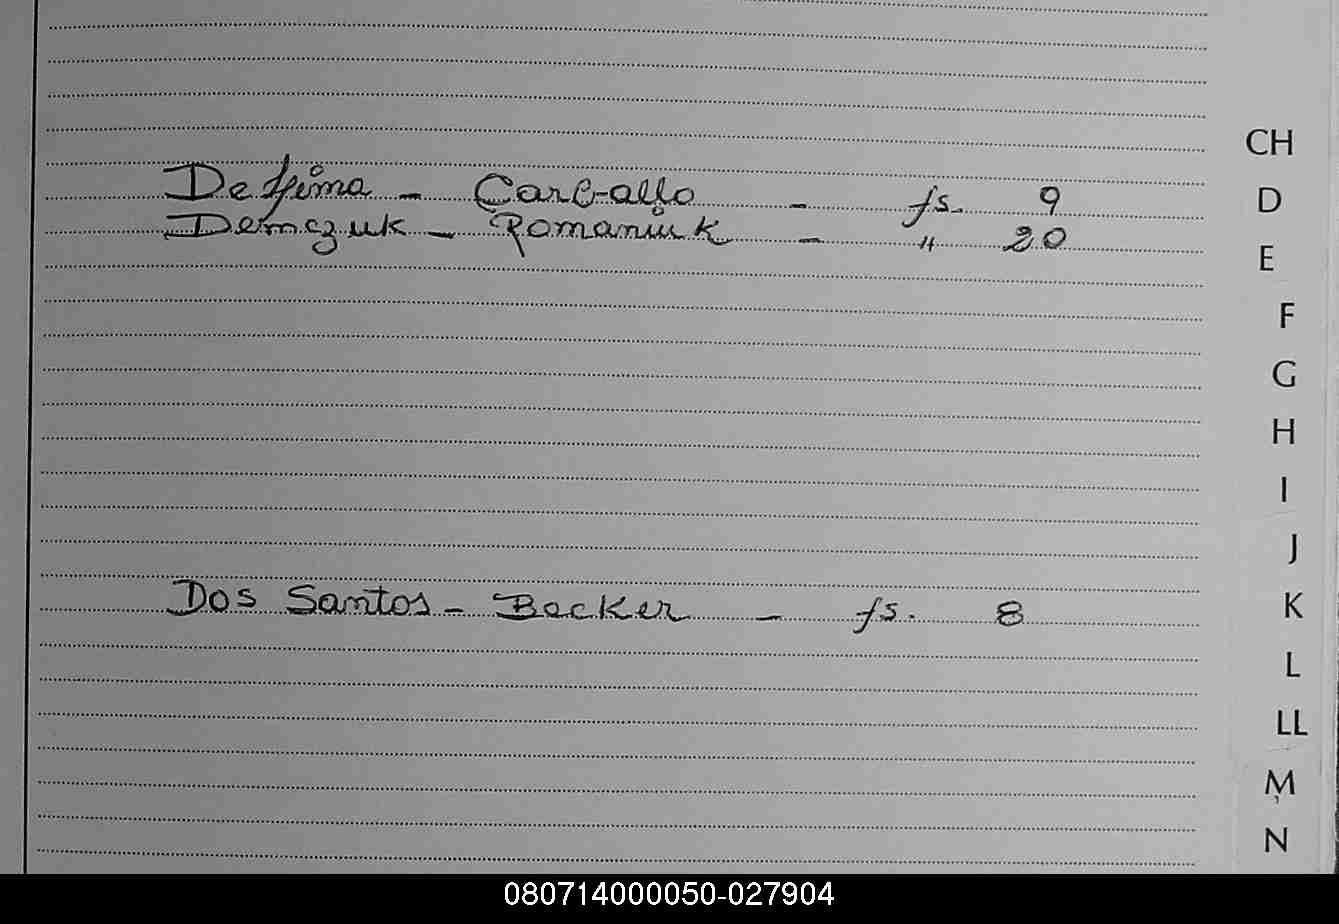 De Lima - Carballo - fs. 9
Demczuk - Romaniuk - " 20
Dos Santos - Becker - fs. 8
CH
D
E
F
G
H
I
J
K
L
LL
M
N
080714000050-027904